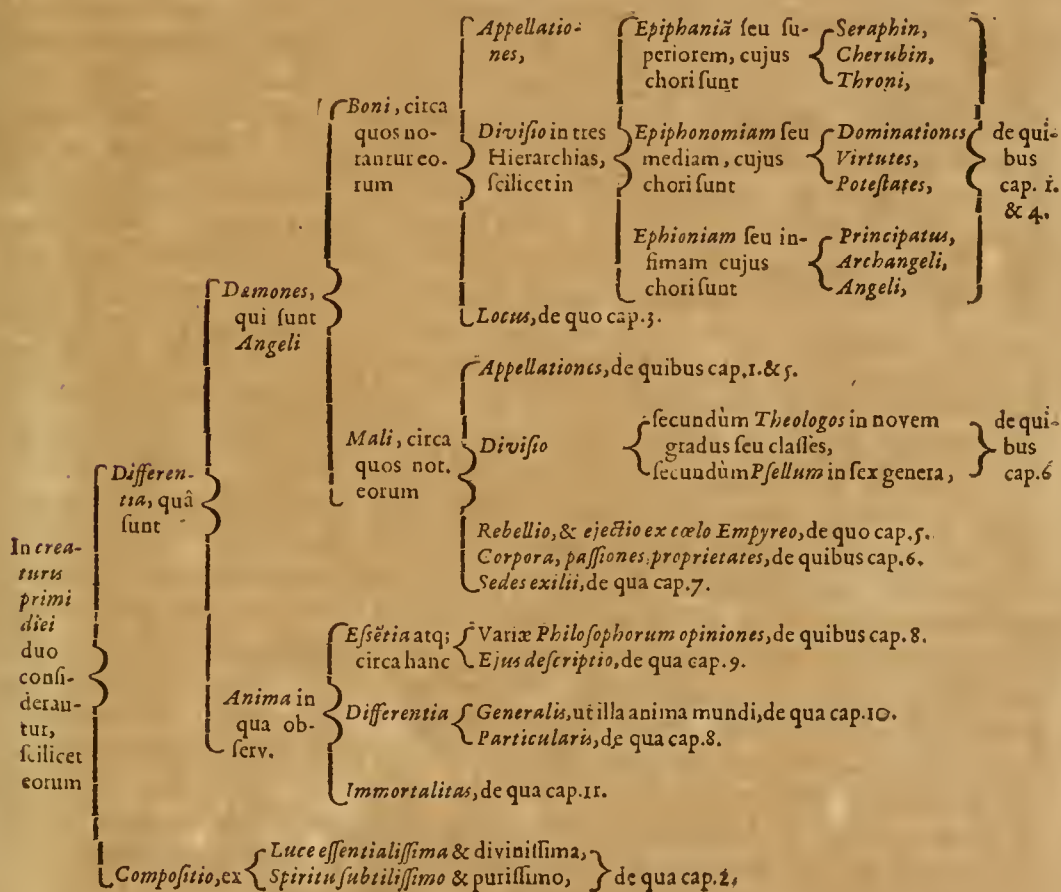 In crea-
turis
primi
diei
duo
consi-
derau-
tur,
scilicet
eorum
Differen-
tia, quâ
sunt
Dæmones,
qui sunt
Angeli
Boni, circa
quos no-
tantur eo-
rum
Appellatio-
nes,
Divisio in tres
Hierarchias,
scilicet in
Epiphaniã seu su-
periorem, cujus
chori sunt
Seraphin,
Cherubin,
Throni,
Epiphonomiam seu
mediam, cujus
chori sunt
Dominationes
Virtutes,
Potestates,
Ephioniam seu in-
fimam cujus
chori sunt
Principatus,
Archangeli,
Angeli,
de qui-
bus
cap. 1.
& 4.
Locus, de quo cap. 3.
Mali, circa
quos not.
eorum
Appellationes, de quibus cap. 1. & 5.
Divisio
secundùm Theologos in novem
gradus seu classes,
secundùm Psellum in sex genera,
de qui-
bus
cap. 6
Rebellio, & ejectio ex cœlo Empyreo, de quo cap. 5.
Corpora, passiones, proprietates, de quibus cap. 6.
Sedes exilii, de qua cap. 7.
Anima in
qua ob-
serv.
Essẽtia atq;
circa hanc
Variæ Philosophorum opiniones, de quibus cap. 8.
Ejus descriptio, de qua cap. 9.
Differentia
Generalis, ut illa anima mundi, de qua cap. 10.
Particularis, de qua cap. 8.
Immortalitas, de qua cap. 11.
Compositio, ex
Luce essentialissima & divinissima,
Spiritu subtilissimo & purissimo,
de qua cap. 2.